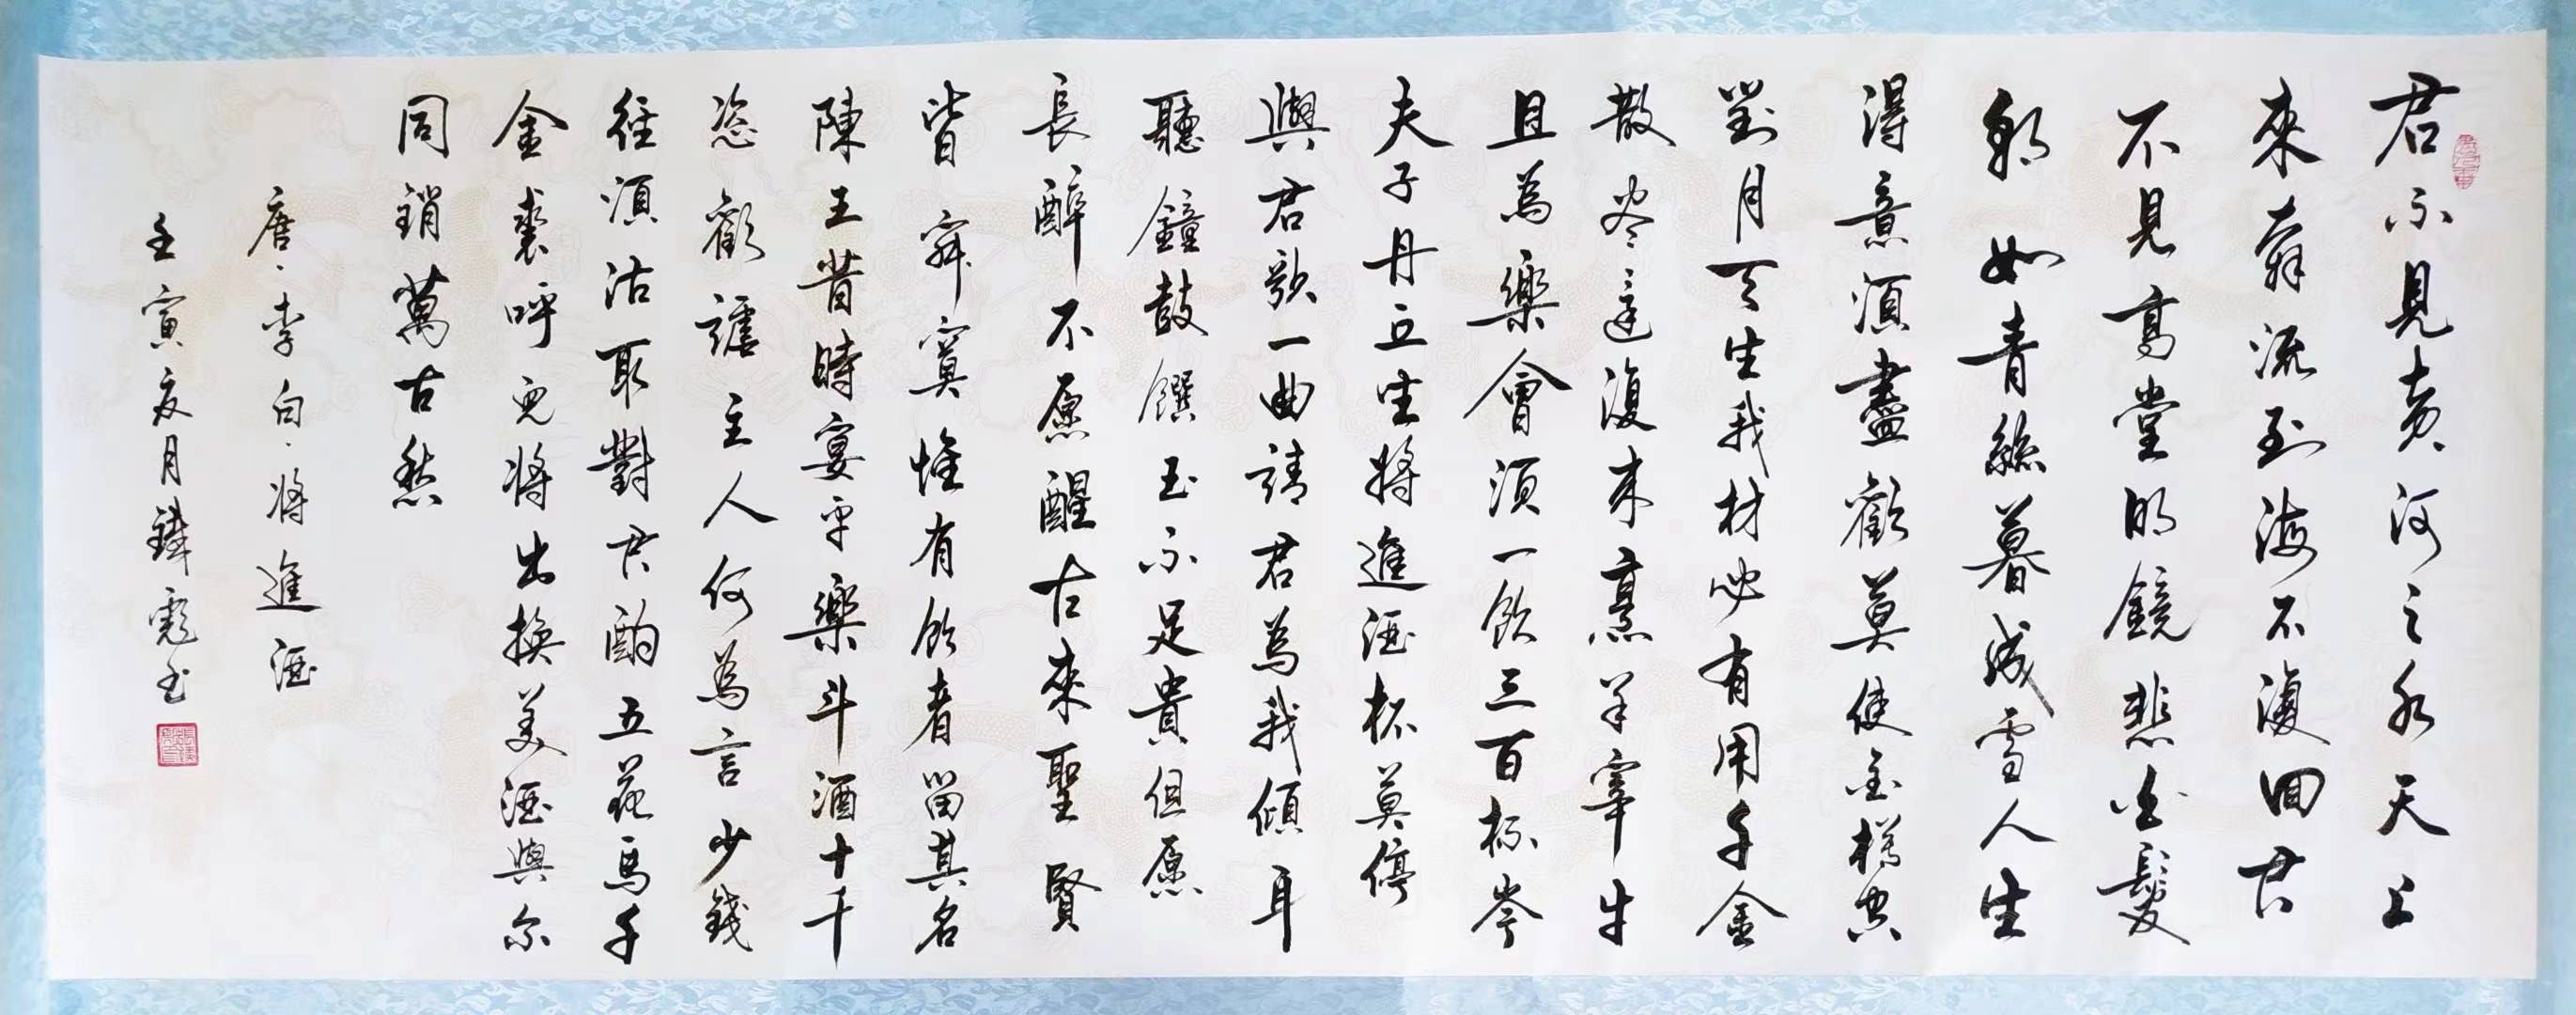 君不見黃河之水天上
來奔流到海不復回君
不見高堂明鏡悲白髮
朝如青絲暮成雪人生
得意須盡歡莫使金樽空
對月天生我材必有用千金
散盡還復來烹羊宰牛
且為樂會須一飲三百杯岑
夫子丹丘生將進酒杯莫停
與君歌一曲請君為我傾耳
聽鐘鼓饌玉不足貴但愿
長醉不愿醒古來聖賢
皆寂寞惟有飲者留其名
陳王昔時宴平樂斗酒十千
恣歡謔主人何為言少錢
徑須沽取對君酌五花馬千
金裘呼兒將出換美酒與爾
同銷萬古愁
唐·李白·將進酒
壬寅夏月鋒彪書